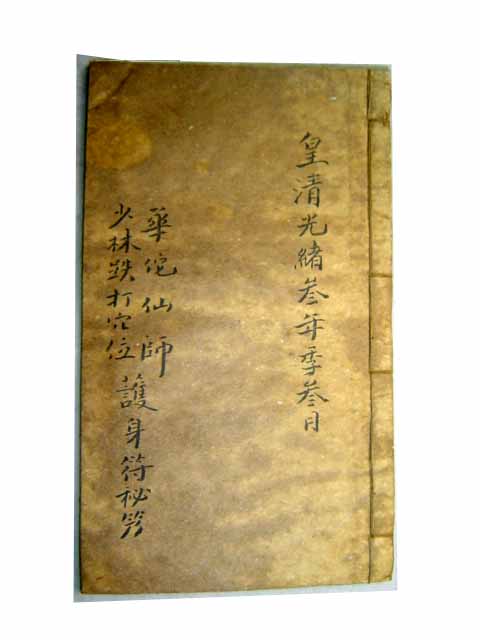 皇清光緒叁年季叁月
華佗仙師
少林跌打穴位
護身符秘笈